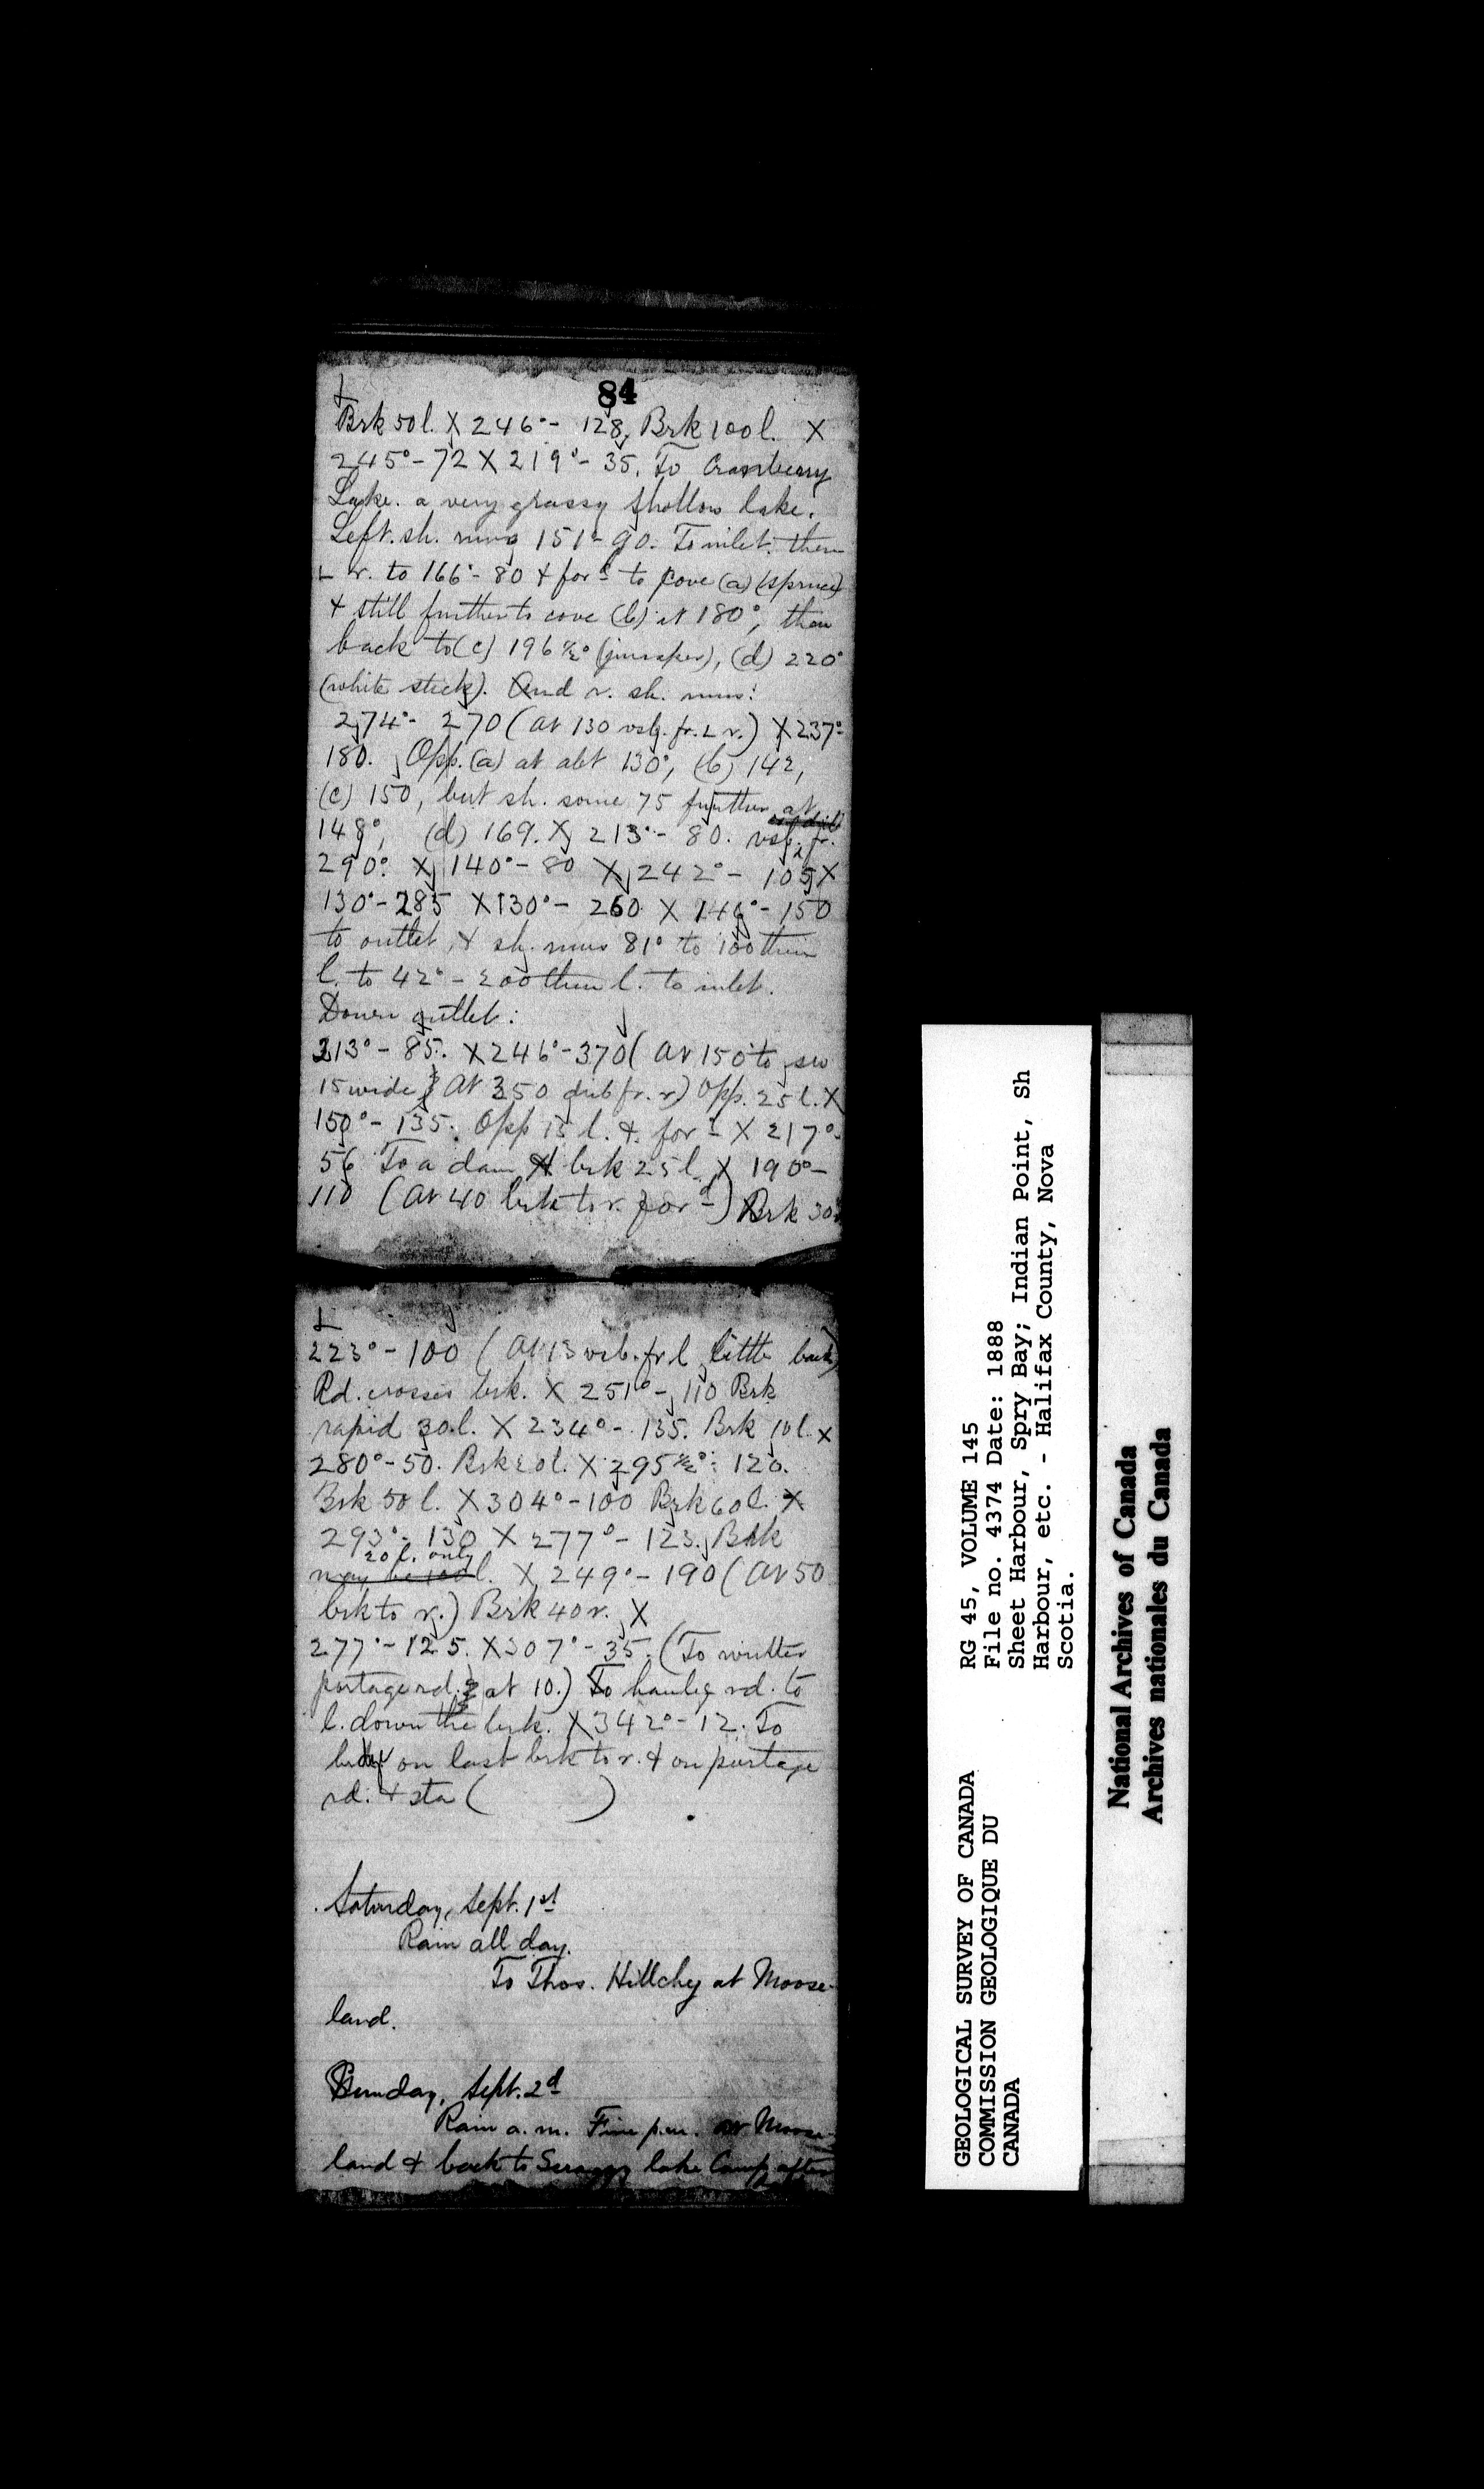 84
L
Brk 50 l. X 246° - 128, Brk 100 l. X
245° - 72 X 219° - 35. To Cranberry
Lake. a very grassy shallow lake.
Left. sh. runs 151° - 90. To inlet. then
L r. to 166° - 80 & for d to cove (a) (spruce)
& still further to cove (b) at 180°, then
back to (c) 196 1/2° (juniper), (d) 220°
(white stick). And r. sh. runs:
274° - 270 (At 130 vsby. fr. L r.) X 237°
180. Opp. (a) at abt 130°, (b) 142,
(c) 150, but sh. some 75 further at
148°, (d) 169. X 213° - 80. fr.
290°. X 140° - 80 X 242° - 105 X
130° - 285 X 130° - 260 X 146° - 150
to outlet, & sh. runs 81° to 100 then
l. to 42° - 200 then l. to inlet.
Down outlet:
213° - 85. X 246° - 370 (At 150 to
15 wide & At 350 fr. r.) Opp. 25 l. X
150° - 135. Opp 15 l. & for d X 217° -
56 To a dam, brk 25 l. X 190° -
110 (At 40 brk to r. for d) Brk 30
L
223° - 100 (At 13 fr. l little back)
Rd. crosses brk. X 251° - 110 Brk
rapid 30 l. X 234° - 135. Brk 10 l. X
280° - 50. Brk 20 l. X 295 1/2° : 120.
Brk 50 l. X 304° - 100 Brk 60 l. X
293° - 130 X 277° - 123. Brk
20 l. only
may be 100 l. X 249° - 190 (At 50
brk to r.) Brk 40 r. X
277° - 125. X 307° - 35. (To winter
portage rd. at 10.) To hauling rd. to
l. down the brk. X 342° - 12. To
on last brk to r. & on portage
rd. & sta ( )
Saturday, Sept. 1st
Rain all day.
To Thos. Hillchey at Moose-
land.
Sunday, Sept. 2d
Rain a.m. Fine p.m. At Moose-
land & back to Scraggy lake Camp after
RG 45, VOLUME 145
File no. 4374 Date: 1888
Sheet Harbour, Spry Bay; Indian Point, Sh
Harbour, etc. - Halifax County, Nova
Scotia.
GEOLOGICAL SURVEY OF CANADA
COMMISSION GEOLOGIQUE DU
CANADA
National Archives of Canada
Archives nationales du Canada